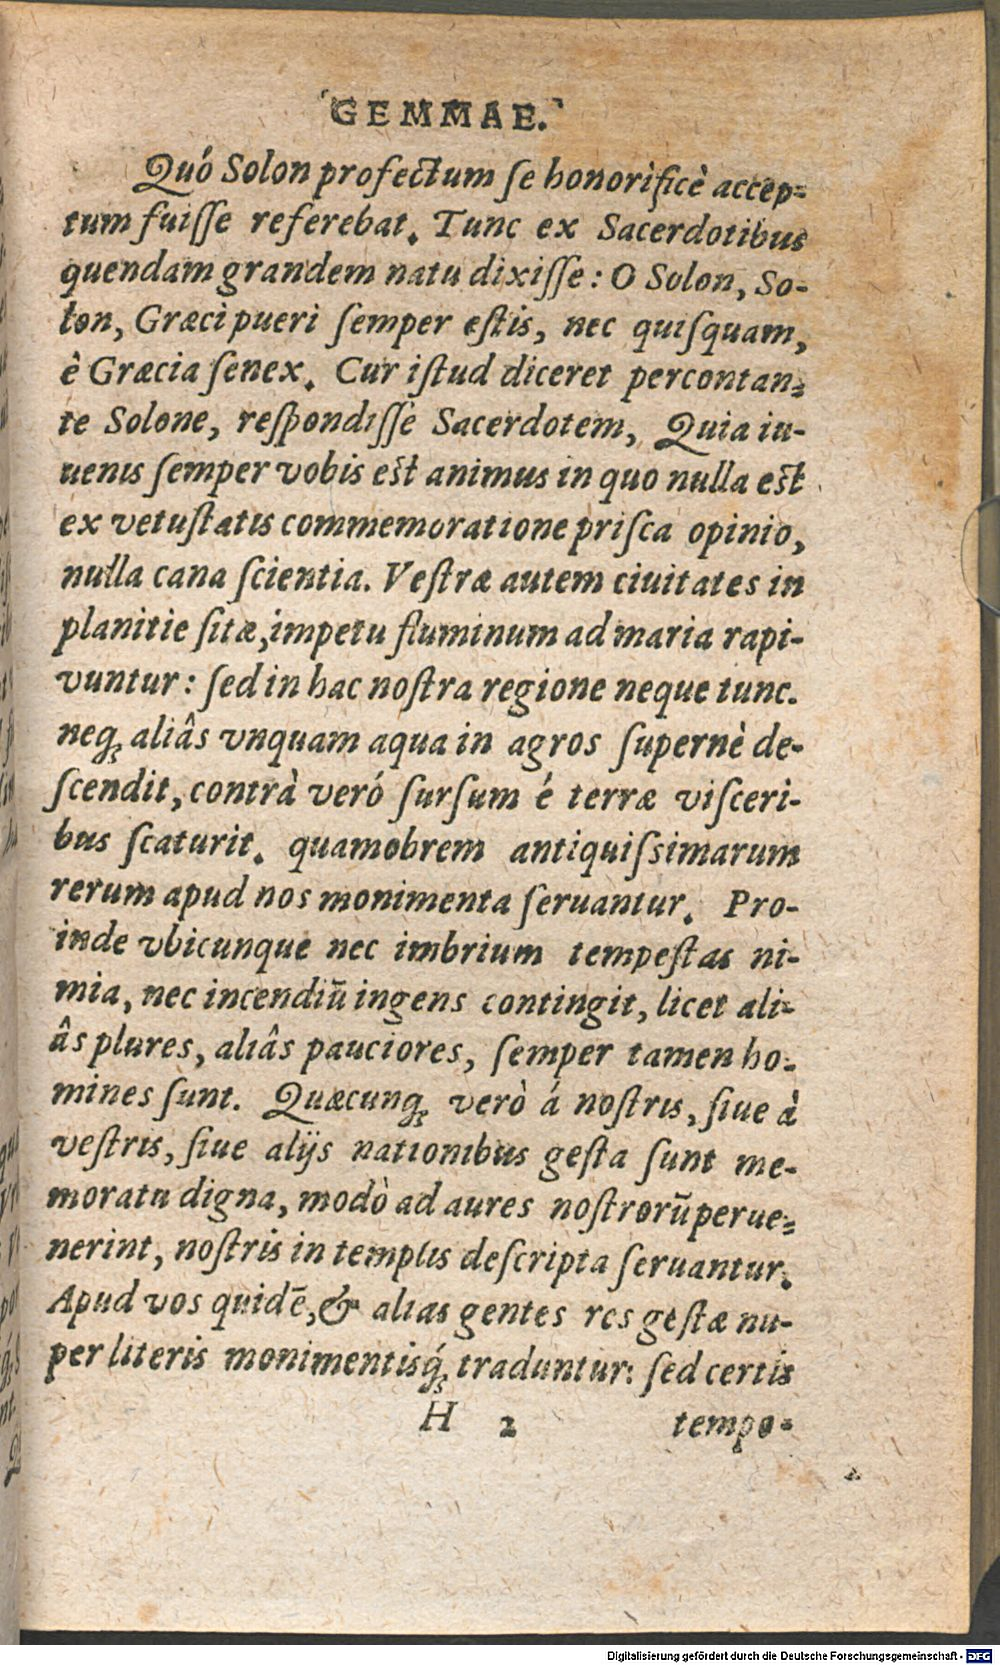 GEMMAE.
Quó Solon profectum se honorìficè accep-
tum fuiſſe referebat. Tunc ex Sacerdotibus
quendam grandem natu dixiſſe: O Solon, So-
lon, Græci pueri ſemper eſtis, nec quiſquam,
ê Græcia ſenex. Cur iſtud diceret percontan-
te Solone, reſpondiſſe Sacerdotem, Quia iu-
uenis ſemper vobis est animus in quo nulla est
ex vetuſtatis commemoratione priſca opinio,
nulla cana ſcientia. Veſtræ autem ciuitates in
planitie ſitæ, impetu fluminum ad maria rapi-
vuntur: ſed in hac noſtra regione neque tunc.
neq; aliâs vnquam aqua in agros ſupernè de-
ſcendit, contrà veró ſurſum é terræ viſceri-
bus ſcaturit. quamobrem antiquiſsimarum
rerum apud nos monimenta ſeruantur. Pro-
inde vbicunque nec imbrium tempeſtas ni-
mia, nec incendiū ingens contingit, licet ali-
âs plures, aliâs pauciores, ſemper tamen ho-
mines ſunt. Quæcunq; verò á noſtris, ſiue à
veſtris, ſiue alijs nationibus geſta ſunt me-
moratu digna, modò ad aures noſtrorū perue-
nerint, noſtris in templis deſcripta ſeruantur.
Apud vos quidē, & alias gentes res geſtæ nu-
per literis monimentisq́; traduntur: ſed certis
H 2 tempo-
Digitalisierung gefördert durch die Deutsche Forschungsgemeinschaft - DFG